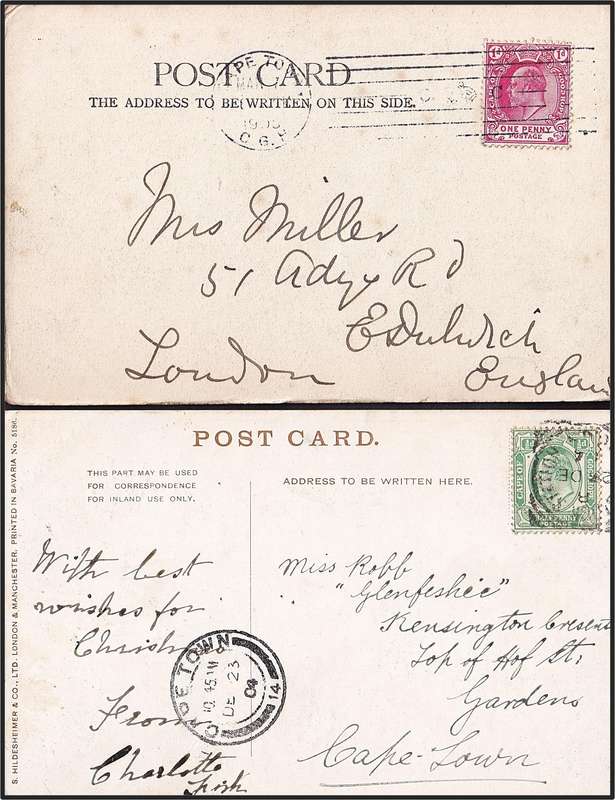 POST CARD
THE ADDRESS TO BE WRITTEN ON THIS SIDE.
CAPE TOWN
MAR
C. G. H
1d 1d
ONE PENNY
POSTAGE
Mrs Miller
51 Adys Rd
E Dulwich
London
England
S. HILDESHEIMER & CO., LTD. LONDON & MANCHESTER. PRINTED IN BAVARIA No. 5186.
POST CARD.
THIS PART MAY BE USED
FOR CORRESPONDENCE
FOR INLAND USE ONLY.
ADDRESS TO BE WRITTEN HERE.
CAPE OF
PENNY
POSTAGE
With best
wishes for
From
Charlotte
CAPE TOWN
10.45 AM
DE 23
04
14
Miss Robb
"Glenfeshie"
Kensington Cresent
Top of Hof St:
Gardens
Cape-Town